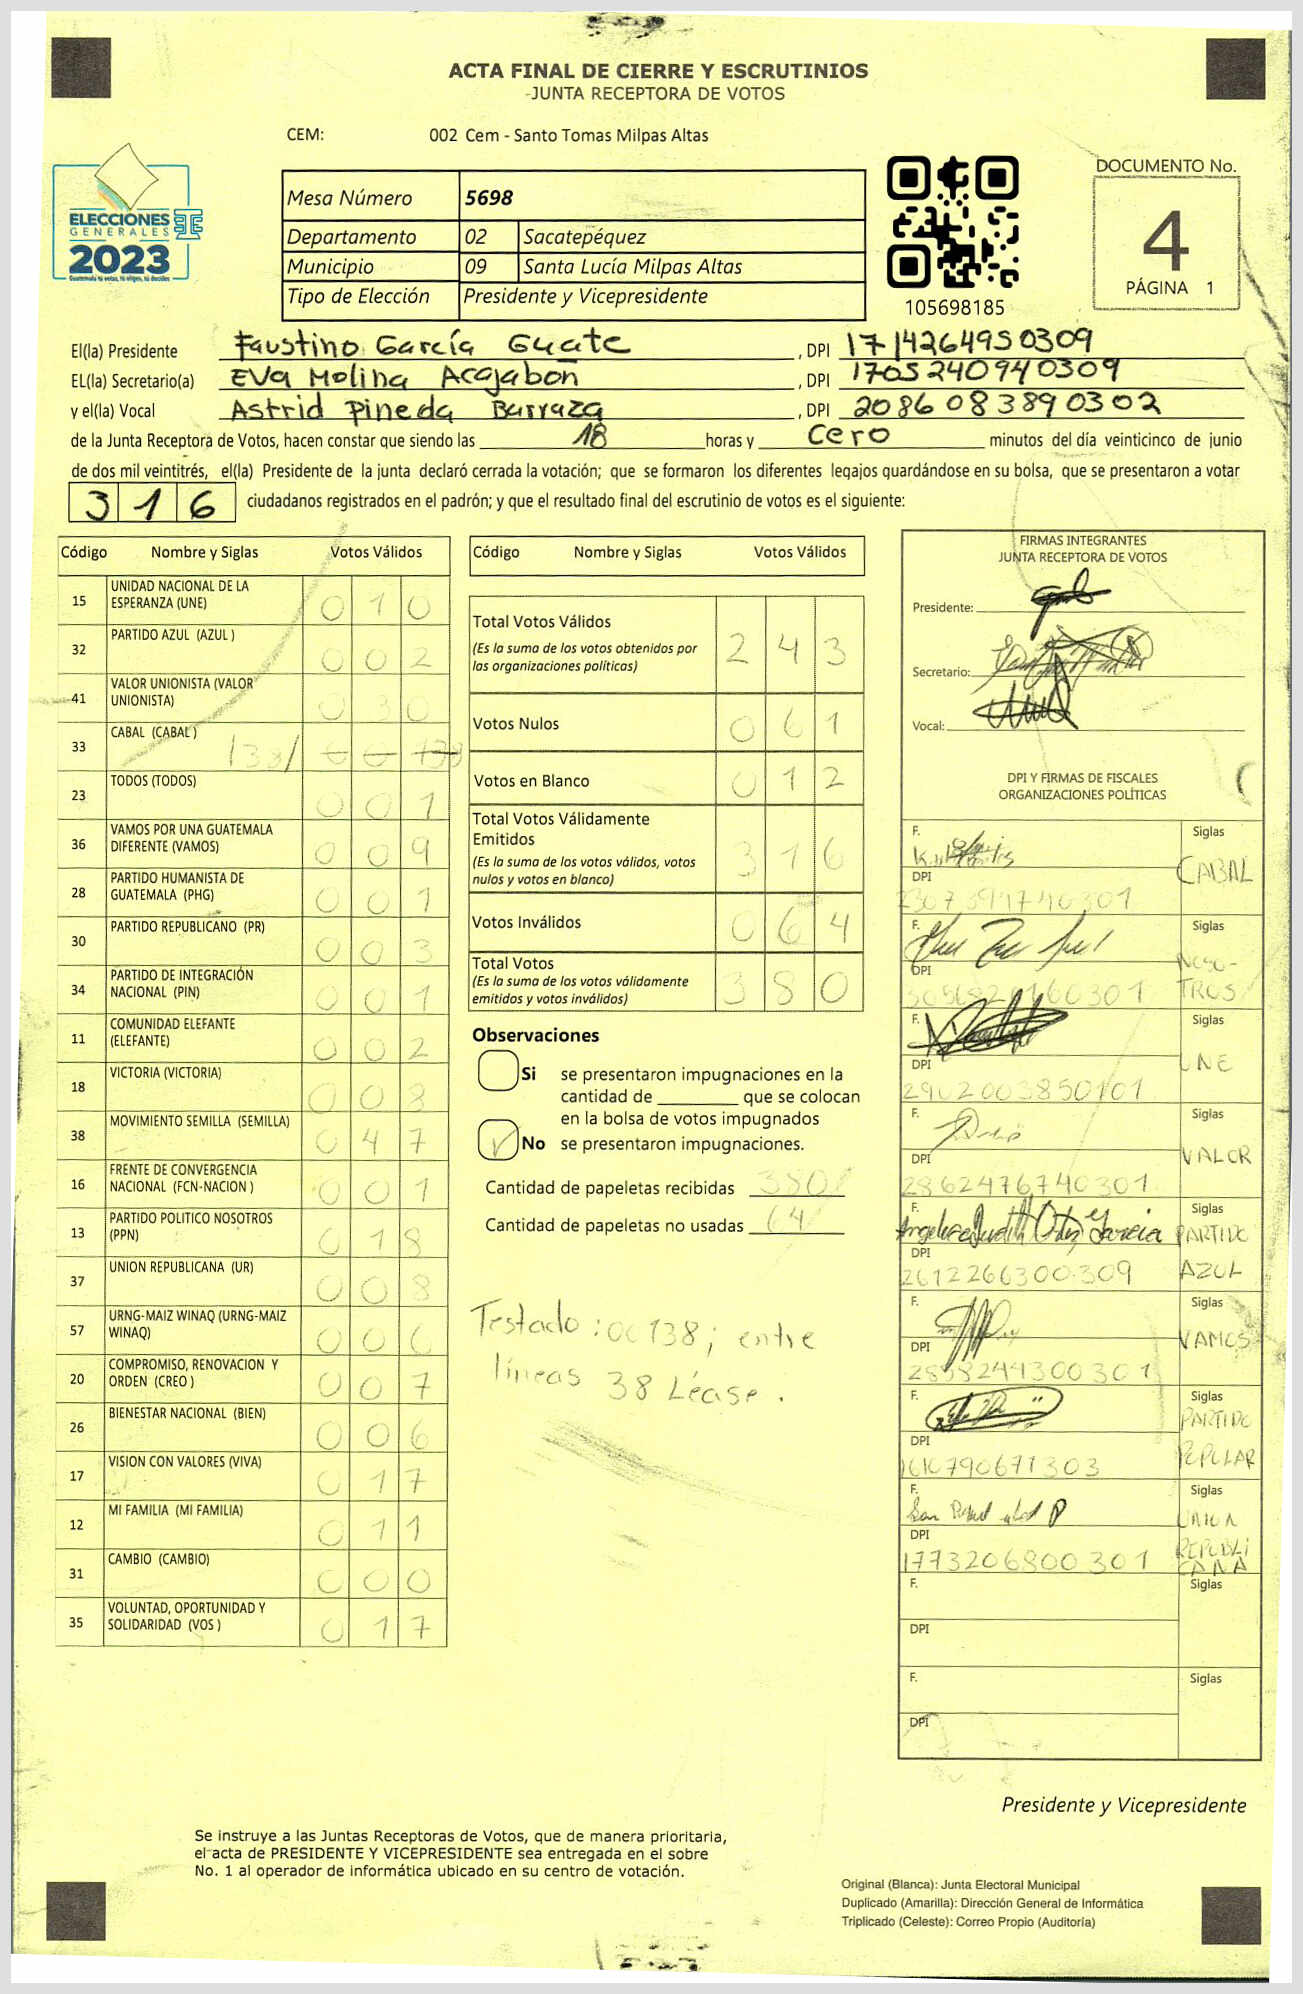 ACTA FINAL DE CIERRE Y ESCRUTINIOS
-JUNTA RECEPTORA DE VOTOS
CEM: 002 Cem - Santo Tomas Milpas Altas
ELECCIONES
GENERALES
2023
Mesa Número 5698
Departamento 02 Sacatepéquez
Municipio 09 Santa Lucía Milpas Altas
Tipo de Elección Presidente y Vicepresidente
105698185
DOCUMENTO No.
4
PÁGINA 1
El(la) Presidente Faustino García Guate, DPI 1714264950309
EL(la) Secretario(a) Eva Molina Acajabón, DPI 1705240940309
y el(la) Vocal Astrid Pineda Barraza, DPI 2086083890302
de la Junta Receptora de Votos, hacen constar que siendo las 18 horas y cero minutos del día veinticinco de junio
de dos mil veintitrés, el(la) Presidente de la junta declaró cerrada la votación; que se formaron los diferentes legajos guardándose en su bolsa, que se presentaron a votar
316 ciudadanos registrados en el padrón; y que el resultado final del escrutinio de votos es el siguiente:
Código Nombre y Siglas Votos Válidos
15 UNIDAD NACIONAL DE LA ESPERANZA (UNE) 010
32 PARTIDO AZUL (AZUL ) 002
41 VALOR UNIONISTA (VALOR UNIONISTA) 030
33 CABAL (CABAL ) /38/
23 TODOS (TODOS) 001
36 VAMOS POR UNA GUATEMALA DIFERENTE (VAMOS) 009
28 PARTIDO HUMANISTA DE GUATEMALA (PHG) 001
30 PARTIDO REPUBLICANO (PR) 003
34 PARTIDO DE INTEGRACIÓN NACIONAL (PIN) 001
11 COMUNIDAD ELEFANTE (ELEFANTE) 002
18 VICTORIA (VICTORIA) 008
38 MOVIMIENTO SEMILLA (SEMILLA) 047
16 FRENTE DE CONVERGENCIA NACIONAL (FCN-NACION ) 001
13 PARTIDO POLITICO NOSOTROS (PPN) 018
37 UNION REPUBLICANA (UR) 008
57 URNG-MAIZ WINAQ (URNG-MAIZ WINAQ) 006
20 COMPROMISO, RENOVACION Y ORDEN (CREO ) 007
26 BIENESTAR NACIONAL (BIEN) 006
17 VISION CON VALORES (VIVA) 017
12 MI FAMILIA (MI FAMILIA) 011
31 CAMBIO (CAMBIO) 000
35 VOLUNTAD, OPORTUNIDAD Y SOLIDARIDAD (VOS ) 017
Código Nombre y Siglas Votos Válidos
Total Votos Válidos 243
(Es la suma de los votos obtenidos por
las organizaciones políticas)
Votos Nulos 061
Votos en Blanco 012
Total Votos Válidamente
Emitidos 316
(Es la suma de los votos válidos, votos
nulos y votos en blanco)
Votos Inválidos 064
Total Votos 380
(Es la suma de los votos válidamente
emitidos y votos inválidos)
Observaciones
Si se presentaron impugnaciones en la
cantidad de ________ que se colocan
en la bolsa de votos impugnados
No se presentaron impugnaciones.
Cantidad de papeletas recibidas 380/
Cantidad de papeletas no usadas 64/
Testado: 00138; entre
líneas 38 Léase.
FIRMAS INTEGRANTES
JUNTA RECEPTORA DE VOTOS
Presidente:
Secretario:
Vocal:
DPI Y FIRMAS DE FISCALES
ORGANIZACIONES POLÍTICAS
F. Siglas
CABAL
DPI
F. Siglas
NOSO-
TROS
DPI
F. Siglas
UNE
DPI 2902003850101
F. Siglas
VALOR
DPI 2862476740301
F. Angelica Judith Ortiz Garcia Siglas
PARTIDO
AZUL
DPI 2612266300309
F. Siglas
VAMOS
DPI 2858244300301
F. Siglas
PARTIDO
POPULAR
DPI 1610790671303
F. Siglas
UNION
REPUBLI
CANA
DPI 1773206800301
F. Siglas
DPI
F. Siglas
DPI
Presidente y Vicepresidente
Se instruye a las Juntas Receptoras de Votos, que de manera prioritaria,
el acta de PRESIDENTE Y VICEPRESIDENTE sea entregada en el sobre
No. 1 al operador de informática ubicado en su centro de votación.
Original (Blanca): Junta Electoral Municipal
Duplicado (Amarilla): Dirección General de Informática
Triplicado (Celeste): Correo Propio (Auditoría)